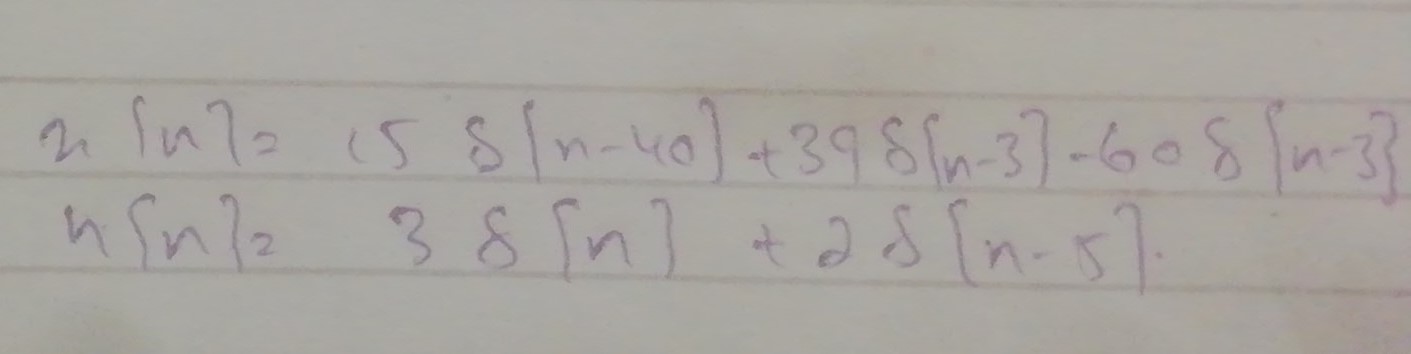 x[n]= 15 δ[n-40]+39δ[n-3]-60δ[n-3]
h[n]= 3 δ[n] +2δ[n-5].